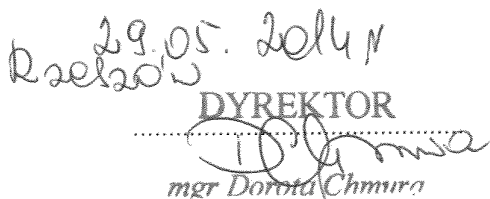 29.05.2014 r
Rzeszów
DYREKTOR
DChmura
mgr Dorota Chmura